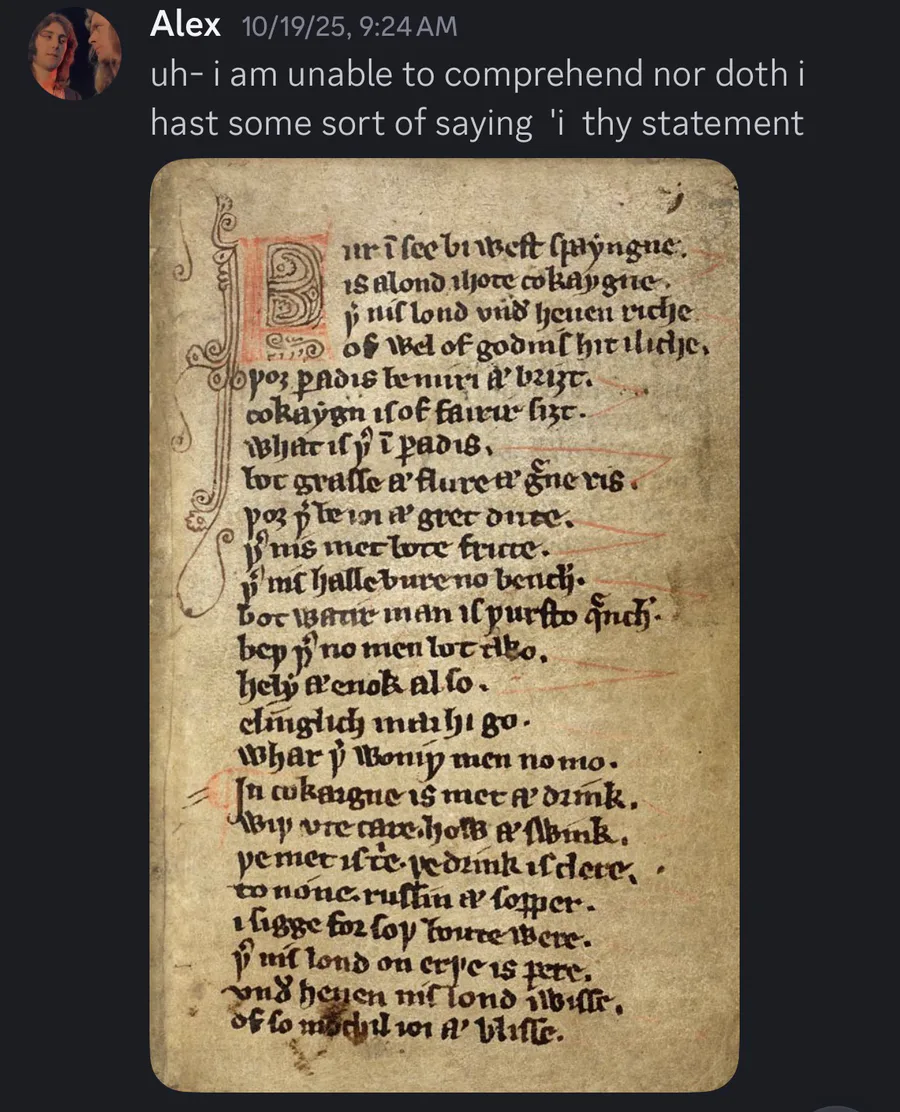 Alex 10/19/25, 9:24 AM
uh- i am unable to comprehend nor doth i
hast some sort of saying 'i thy statement
ur ī see bi west spaẏngne.
is alond ihote cokaygne.
þ̉ nis lond vnd̉ heuen riche
of wel of godnis hit iliche.
þoȝ ꝑadis be miri ⁊ briȝt.
cokaẏgn is of fairir siȝt.
what is þ̉ ī ꝑadis.
bot grasse ⁊ flure ⁊ g̉ne ris.
þoȝ þ̉ be ioi ⁊ gret dute.
þ̉ nis met bote frute.
þ̉ nis halle bure no bench.
bot watir man is þursto q̉nch.
beþ þ̉ no men bot
helẏ ⁊ enok also.
elinglich mai hi go.
whar þ̉ woniþ men no mo.
In cokaigne is met ⁊ drink.
wiþ vte care. how ⁊ swink.
þe met is þe drink is clere.
to none. russin ⁊ sopper.
i sigge for soþ boute were.
þ̉ nis lond on erþe is pere.
vnd̉ heuen nis lond iwisse.
of so mochil ioi ⁊ blisse.